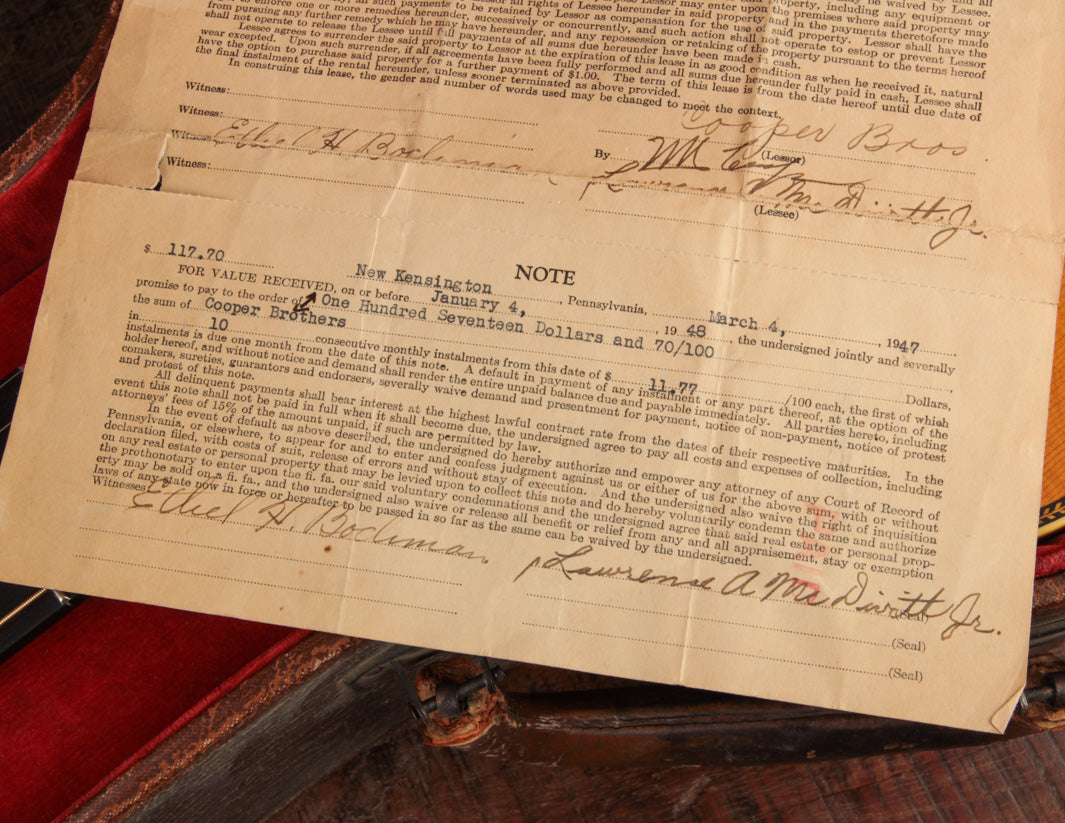 may be waived by Lessee.
Lessor may enter upon the premises where said property may
all rights of Lessee hereunder in said property and in the payments theretofore made
all such payments to be retained by Lessor as compensation for the use of said property. Lessor shall have the
to enforce one or more remedies hereunder, successively or concurrently, and such action shall not operate to estop or prevent Lessor
from pursuing any further remedy which he may have hereunder, and any repossession or retaking of the property pursuant to the terms hereof
shall not operate to release the Lessee until full payments of all sums due hereunder have been made in cash.
Lessee agrees to surrender the said property to Lessor at the expiration of this lease in as good condition as when he received it, natural
wear excepted. Upon such surrender, if all agreements have been fully performed and all sums due hereunder fully paid in cash, Lessee shall
have the option to purchase said property for a further payment of $1.00. The term of this lease is from the date hereof until due date of
the final instalment of the rental hereunder, unless sooner terminated as above provided.
In construing this lease, the gender and number of words used may be changed to meet the context.
Witness:
Cooper Bros.
Witness:
By (Lessor)
Witness: Ethel H Bochman
Lawrence A Mc Divitt Jr.
Witness:
(Lessee)
NOTE
$ 117.70
New Kensington, Pennsylvania, March 4, 1947
FOR VALUE RECEIVED, on or before January 4, 1948, the undersigned jointly and severally
promise to pay to the order of Cooper Brothers
the sum of One Hundred Seventeen Dollars and 70/100 Dollars,
in 10 consecutive monthly instalments from this date of $ 11.77 /100 each, the first of which
instalments is due one month from the date of this note. A default in payment of any instalment or any part thereof, at the option of the
holder hereof, and without notice and demand shall render the entire unpaid balance due and payable immediately. All parties hereto, including
comakers, sureties, guarantors and endorsers, severally waive demand and presentment for payment, notice of non-payment, notice of protest
and protest of this note.
All delinquent payments shall bear interest at the highest lawful contract rate from the dates of their respective maturities. In the
event this note shall not be paid in full when it shall become due, the undersigned agree to pay all costs and expenses of collection, including
attorneys' fees of 15% of the amount unpaid, if such are permitted by law.
In the event of default as above described, the undersigned do hereby authorize and empower any attorney of any Court of Record of
Pennsylvania, or elsewhere, to appear for and to enter and confess judgment against us or either of us for the above sum, with or without
declaration filed, with costs of suit, release of errors and without stay of execution. And the undersigned also waive the right of inquisition
on any real estate or personal property that may be levied upon to collect this note and do hereby voluntarily condemn the same and authorize
the prothonotary to enter upon the fi. fa. our said voluntary condemnations and the undersigned agree that said real estate or personal prop-
erty may be sold on a fi. fa., and the undersigned also waive or release all benefit or relief from any and all appraisement, stay or exemption
laws of any state now in force or hereafter to be passed in so far as the same can be waived by the undersigned.
Witnesses:
Ethel H. Bochman
Lawrence A Mc Divitt Jr.
(Seal)
(Seal)
(Seal)